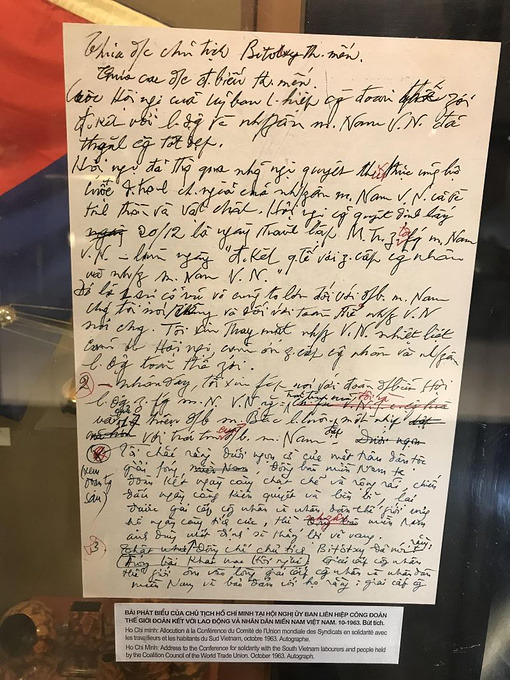 Thưa đ/c chủ tịch Bitôtxy th. mến.
Thưa các đ/c đ. biểu th. mến.
Cuộc Hội nghị của Uỷ ban l. hiệp cg đoàn thế giới
đ. kết với l. động và nh/zân m. Nam V.N. đã
thành cg tốt đẹp.
Hội nghị đã thg qua nhg nghị quyết thiết thực ủng hộ
cuộc đ. tranh ch. nghĩa của nh/zân m. Nam V.N. cả về
tinh thần và vật chất. Hội nghị cg quyết định lấy
ngày 20/12 là ngày thành lập M. Tr. z. tộc g/f m. Nam
V.N. – làm ngày "đ. kết q. tế với z. cấp cg nhân
và nh/z m. Nam V.N."
Đó là 1 sự cổ vũ vô cùng to lớn đối với đ/b m. Nam
chg tôi nói riêng và đối với toàn thể nh/z V.N
nói chg. Tôi xin thay mặt nh/z V.N. nhiệt liệt
cảm ơn Hội nghị, cảm ơn z. cấp cg nhân và nh/zân
l. động toàn thế giới.
2 – nhân đây, tôi xin fép nói với đoàn đ/biểu Hội
l. động z. fg m. N. V.N
với đ/b m. Nam
(xem
trang
sau)
dưới ngọn cờ của mặt trận dân tộc
giải fóng miền Nam, đồng bào miền Nam ta
đoàn kết ngày càng chặt chẽ và rộng rãi, chiến
đấu ngày càng kiên quyết và bền bỉ, lại
được giai cấp cg nhân và nhân dân thế giới ủng
hộ ngày càng tích cực, thì miền Nam
anh dũng nhất định sẽ thắng lợi vẻ vang.
3 Đồng chí chủ tịch Bitôtxy đã nói rằng,
Giai cấp cg nhân
thế giới
miền Nam và bảo đảm với họ rằng: giai cấp cg
BÀI PHÁT BIỂU CỦA CHỦ TỊCH HỒ CHÍ MINH TẠI HỘI NGHỊ ỦY BAN LIÊN HIỆP CÔNG ĐOÀN
THẾ GIỚI ĐOÀN KẾT VỚI LAO ĐỘNG VÀ NHÂN DÂN MIỀN NAM VIỆT NAM. 10-1963. Bút tích.
Ho Chi minh: Allocution à la Conférence du Comité de l'Union mondiale des Syndicats en solidarité avec
les travailleurs et les habitants du Sud Vietnam, octobre 1963. Autographe.
Ho Chi Minh: Address to the Conference for solidarity with the South Vietnam labourers and people held
by the Coalition Council of the World Trade Union. October 1963. Autograph.